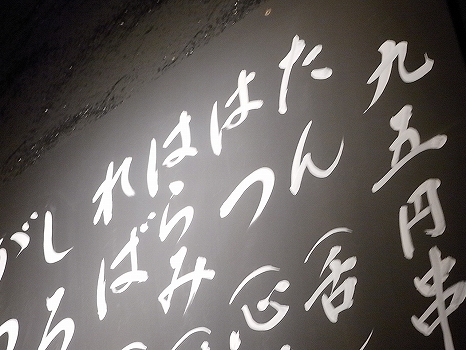 九五円串
たん（舌
はつ（心
はらみ
ればー
しろ